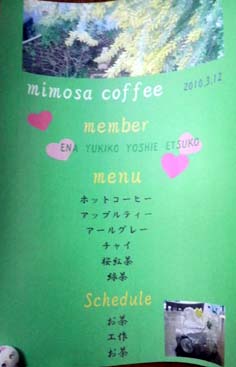 mimosa coffee
2010.3.12
member
ENA YUKIKO YOSHIE ETSUKO
menu
ホットコーヒー
アップルティー
アールグレー
チャイ
桜紅茶
緑茶
Schedule
お茶
工作
お茶